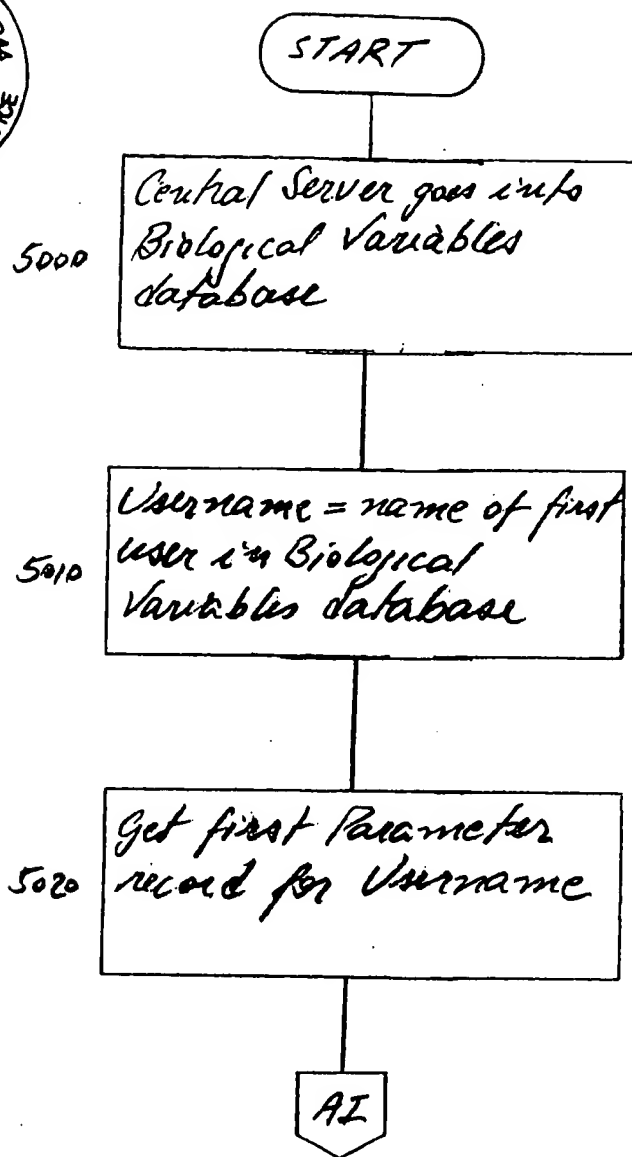 START
5000
Central Server goes into
Biological Variables
database
5010
Username = name of first
user in Biological
Variables database
5020
Get first Parameter
record for Username
AI